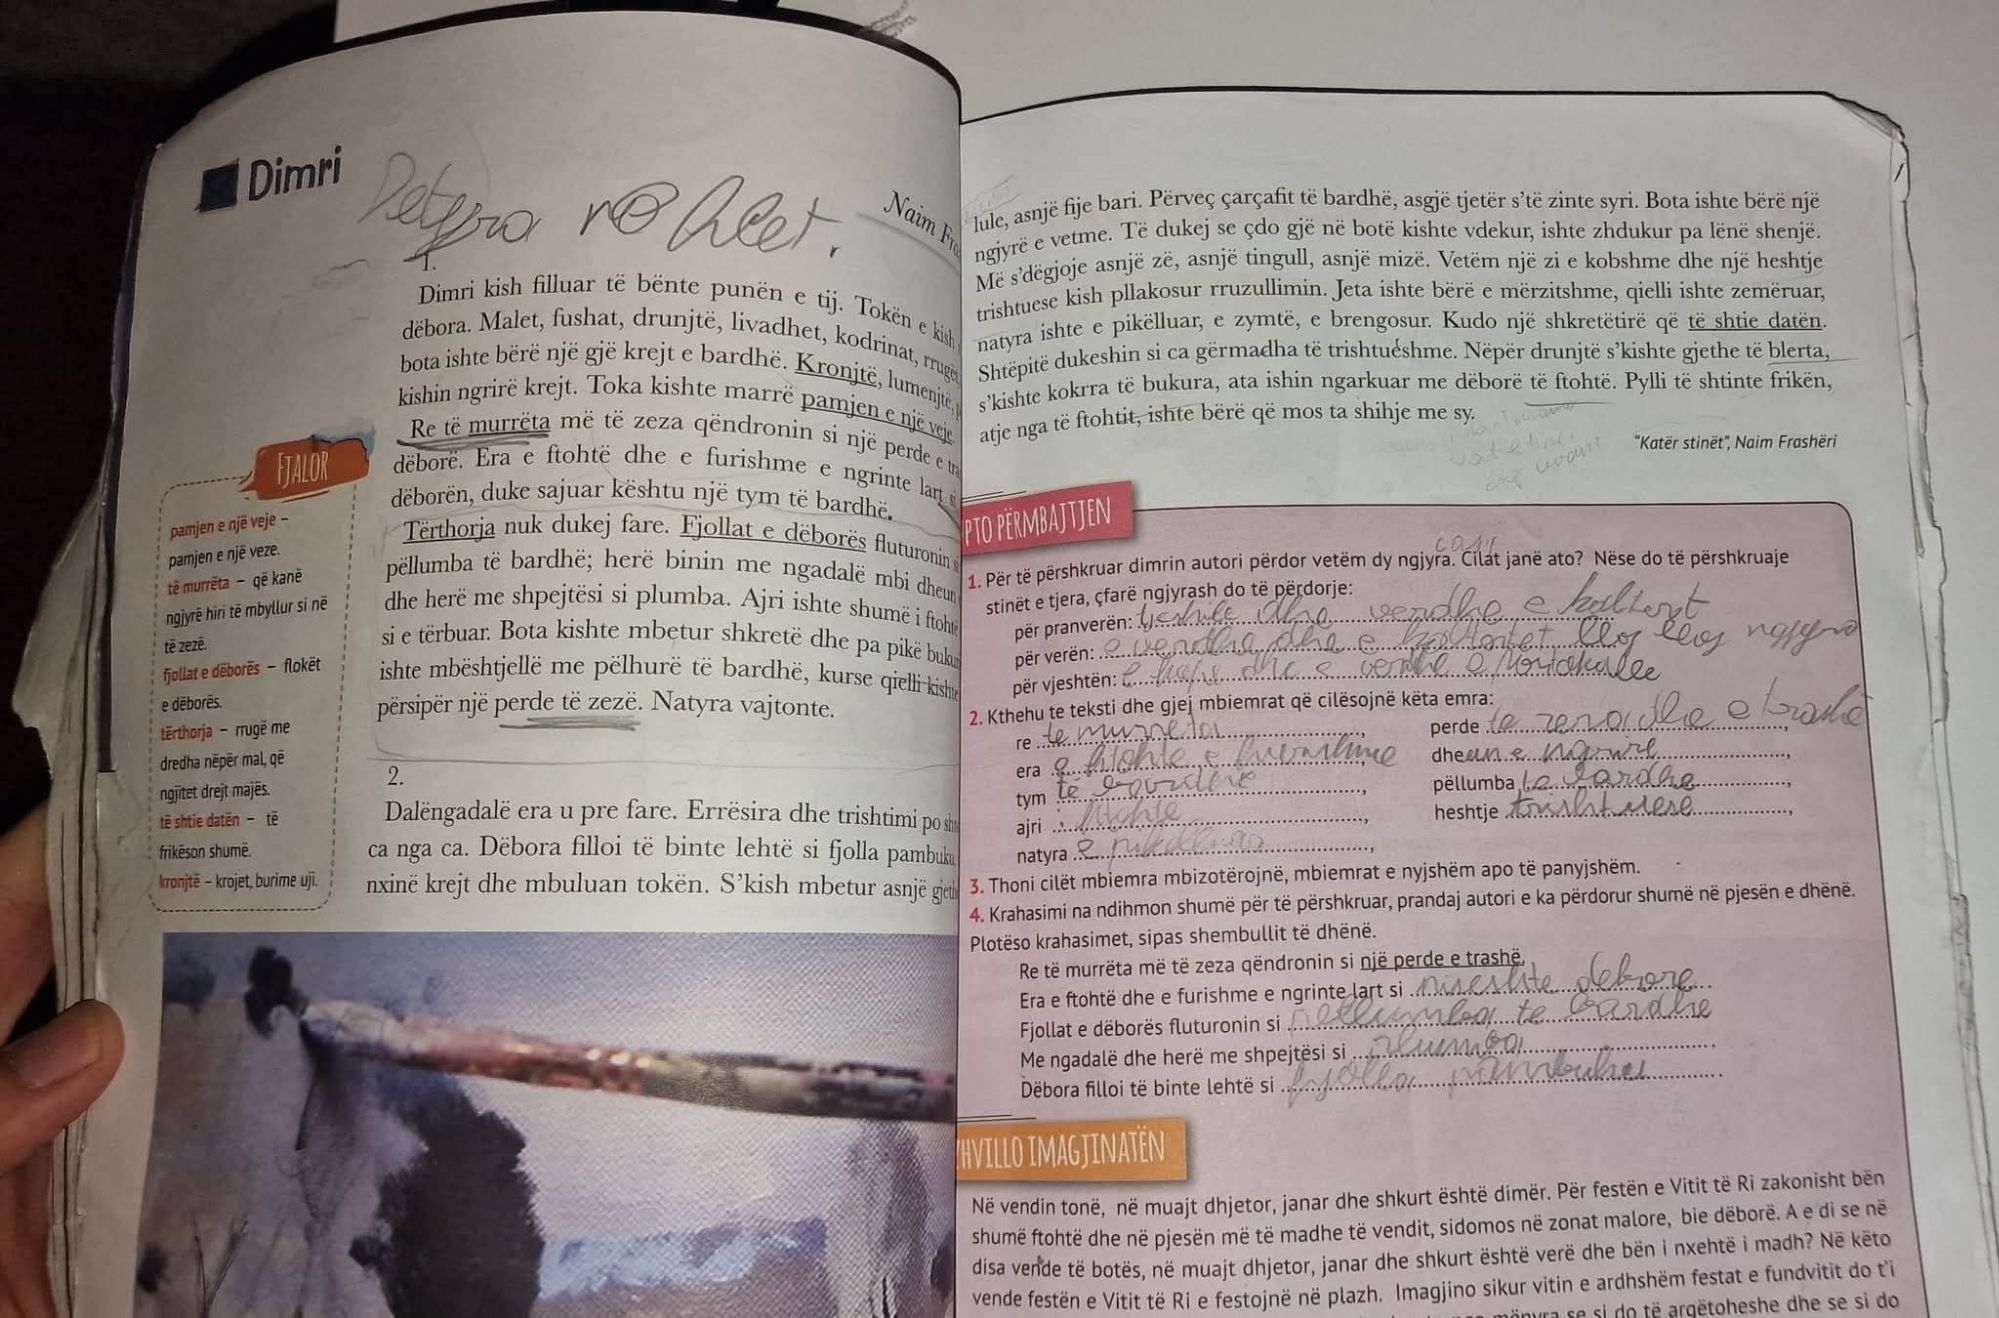 Dimri
Detyra
Naim
1.
Dimri kish filluar të bënte punën e tij. Tokën e kish
dëbora. Malet, fushat, drunjtë, livadhet, kodrinat, rrugët
bota ishte bërë një gjë krejt e bardhë. Kronjtë, lumenjtë,
kishin ngrirë krejt. Toka kishte marrë pamjen e një veje.
Re të murrëta më të zeza qëndronin si një perde e
dëborë. Era e ftohtë dhe e furishme e ngrinte lart
dëborën, duke sajuar kështu një tym të bardhë.
Tërthorja nuk dukej fare. Fjollat e dëborës fluturonin
pëllumba të bardhë; herë binin me ngadalë mbi dheun
dhe herë me shpejtësi si plumba. Ajri ishte shumë i ftohtë
si e tërbuar. Bota kishte mbetur shkretë dhe pa pikë
ishte mbështjellë me pëlhurë të bardhë, kurse qielli kishte
përsipër një perde të zezë. Natyra vajtonte.
2.
Dalëngadalë era u pre fare. Errësira dhe trishtimi po
ca nga ca. Dëbora filloi të binte lehtë si fjolla pambuku
nxinë krejt dhe mbuluan tokën. S'kish mbetur asnjë
FJALOR
pamjen e një veje –
pamjen e një veze.
të murrëta – që kanë
ngjyrë hiri të mbyllur si në
të zezë.
fjollat e dëborës – flokët
e dëborës.
tërthorja – rrugë me
dredha nëpër mal, që
ngjitet drejt majës.
të shtie datën – të
frikëson shumë.
kronjtë – krojet, burime uji.
lule, asnjë fije bari. Përveç çarçafit të bardhë, asgjë tjetër s'të zinte syri. Bota ishte bërë një
ngjyrë e vetme. Të dukej se çdo gjë në botë kishte vdekur, ishte zhdukur pa lënë shenjë.
Më s'dëgjoje asnjë zë, asnjë tingull, asnjë mizë. Vetëm një zi e kobshme dhe një heshtje
trishtuese kish pllakosur rruzullimin. Jeta ishte bërë e mërzitshme, qielli ishte zemëruar,
natyra ishte e pikëlluar, e zymtë, e brengosur. Kudo një shkretëtirë që të shtie datën.
Shtëpitë dukeshin si ca gërmadha të trishtuëshme. Nëpër drunjtë s'kishte gjethe të blerta,
s'kishte kokrra të bukura, ata ishin ngarkuar me dëborë të ftohtë. Pylli të shtinte frikën,
atje nga të ftohtit, ishte bërë që mos ta shihje me sy.
"Katër stinët", Naim Frashëri
PTO PËRMBAJTJEN
1. Për të përshkruar dimrin autori përdor vetëm dy ngjyra. Cilat janë ato? Nëse do të përshkruaje
stinët e tjera, çfarë ngjyrash do të përdorje:
për pranverën: jeshile dhe verdhe e kaltert
për verën: e verdhe dhe e lloj lloj ngjyra
për vjeshtën: e kafe dhe e verdhe e
2. Kthehu te teksti dhe gjej mbiemrat që cilësojnë këta emra:
re te murreta perde te zeza dhe e trashë
era e ftohte e furishme dheun e ngrire
tym te bardhe pëllumba te bardhe
ajri i ftohte heshtje trishtuese
natyra e
3. Thoni cilët mbiemra mbizotërojnë, mbiemrat e nyjshëm apo të panyjshëm.
4. Krahasimi na ndihmon shumë për të përshkruar, prandaj autori e ka përdorur shumë në pjesën e dhënë.
Plotëso krahasimet, sipas shembullit të dhënë.
Re të murrëta më të zeza qëndronin si një perde e trashë.
Era e ftohtë dhe e furishme e ngrinte lart si
Fjollat e dëborës fluturonin si pellumba te bardhe
Me ngadalë dhe herë me shpejtësi si plumba
Dëbora filloi të binte lehtë si fjolla pambuku
HVILLO IMAGJINATËN
Në vendin tonë, në muajt dhjetor, janar dhe shkurt është dimër. Për festën e Vitit të Ri zakonisht bën
shumë ftohtë dhe në pjesën më të madhe të vendit, sidomos në zonat malore, bie dëborë. A e di se në
disa vende të botës, në muajt dhjetor, janar dhe shkurt është verë dhe bën i nxehtë i madh? Në këto
vende festën e Vitit të Ri e festojnë në plazh. Imagjino sikur vitin e ardhshëm festat e fundvitit do t'i
mënyra se si do të argëtoheshe dhe se si do